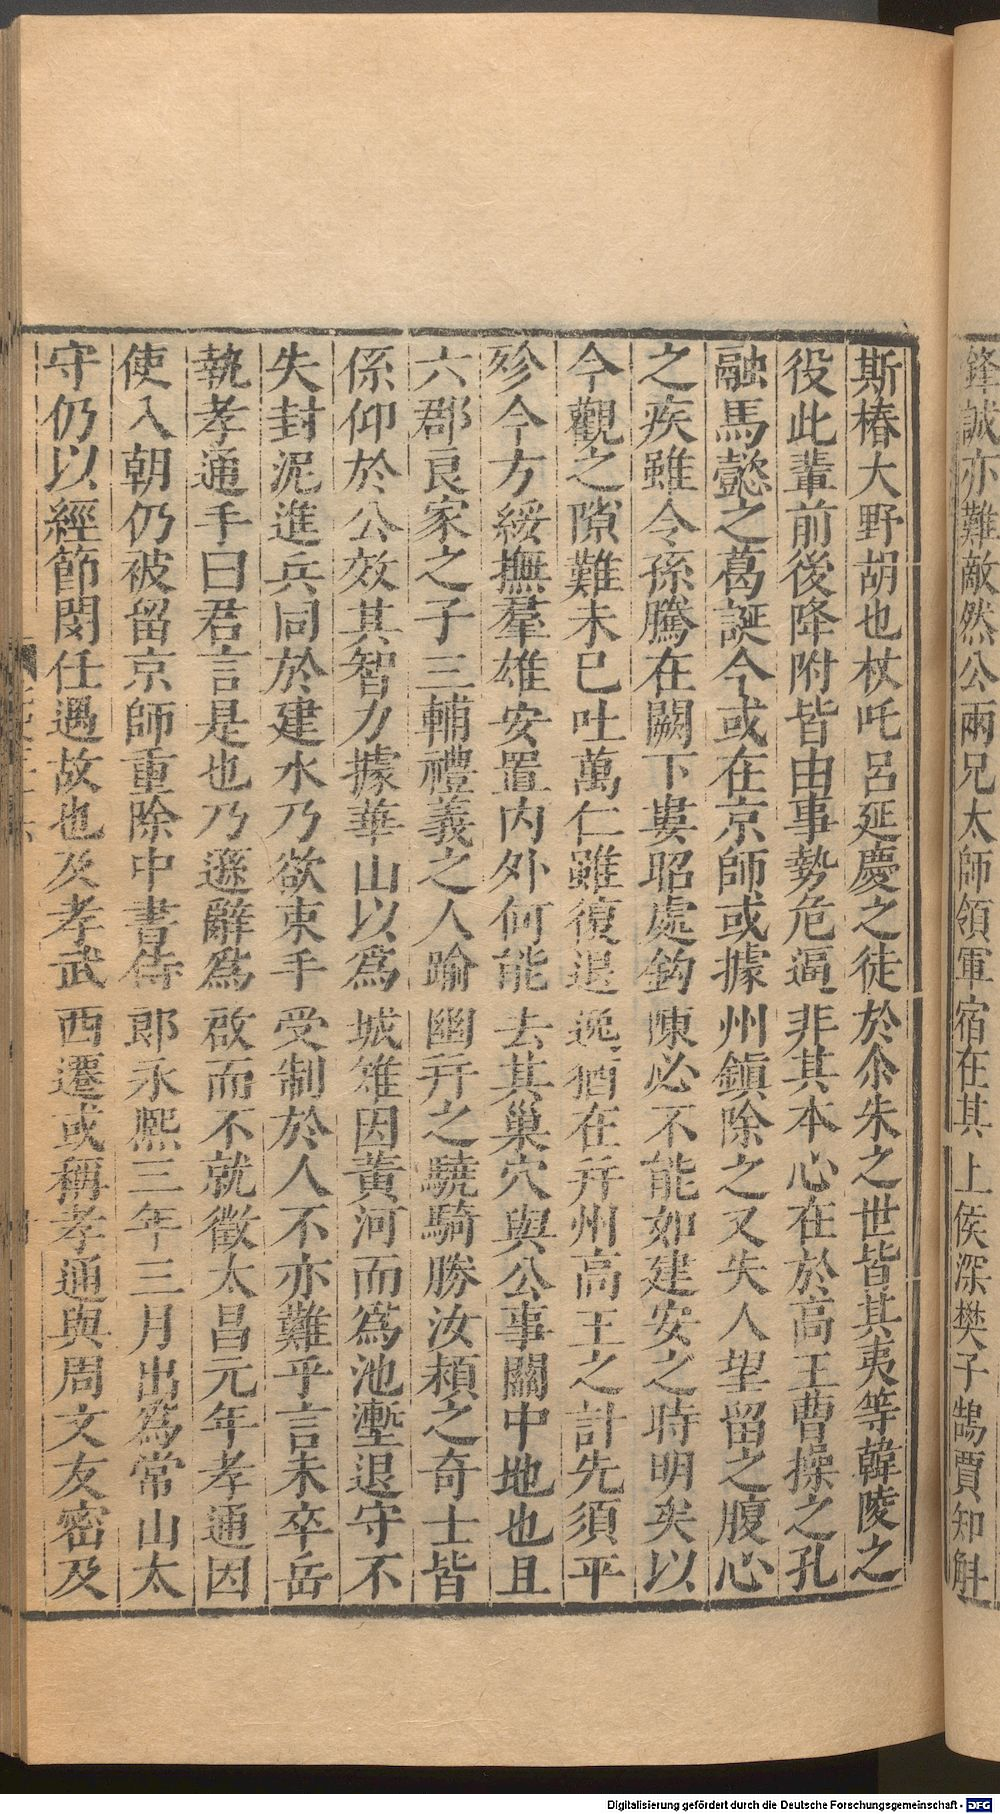 鋒誠亦難敵然公兩兄太師領軍宿在其上侯深樊子鵠賈知斛
斯椿大野胡也杖吒呂延慶之徒於尒朱之世皆其夷等韓陵之
役此輩前後降附皆由事勢危逼非其本心在於高王曹操之孔
融馬懿之葛誕今或在京師或據州鎮除之又失人望留之腹心
之疾雖令孫騰在闕下婁昭處鈎陳必不能如建安之時明矣以
今觀之隙難未已吐萬仁雖復退逸猶在并州高王之計先須平
殄今方綏撫羣雄安置內外何能去其巢穴與公事關中地也且
六郡良家之子三輔禮義之人踰幽并之驍騎勝汝頴之奇士皆
係仰於公效其智力據華山以爲城雉因黃河而爲池壍退守不
失封泥進兵同於建水乃欲束手受制於人不亦難乎言未卒岳
執孝通手曰君言是也乃遜辭爲啟而不就徵太昌元年孝通因
使入朝仍被留京師重除中書侍郎永熙三年三月出爲常山太
守仍以經節閔任遇故也及孝武西遷或稱孝通與周文友密及
Digitalisierung gefördert durch die Deutsche Forschungsgemeinschaft - DFG